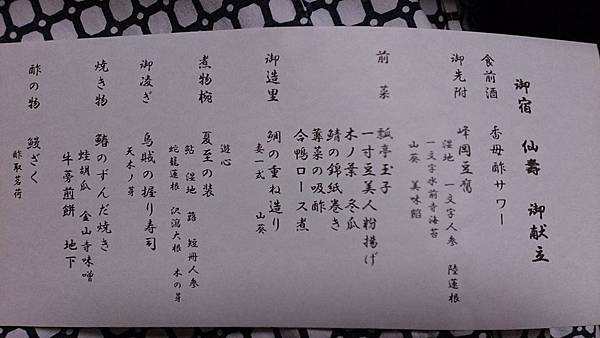 御宿 仙壽 御献立
食前酒 香母酢サワー
御先附 峰岡豆腐
湿地 一文字人参 陸蓮根
一文字水前寺海苔
山葵 美味餡
前菜 瓢亭玉子
一寸豆美人粉揚げ
木ノ葉冬瓜
鯖の錦紙巻き
蓴菜の吸酢
合鴨ロース煮
御造里 鯛の重ね造り
妻一式 山葵
煮物椀 遊心
夏至の装
鮎 湿地 蕗 短冊人参
蛇籠蓮根 沢潟大根 木の芽
御凌ぎ 烏賊の握り寿司
天木ノ芽
焼き物 鰆のずんだ焼き
蛙胡瓜 金山寺味噌
牛蒡煎餅 地下
酢の物 鰻ざく
酢取茗荷